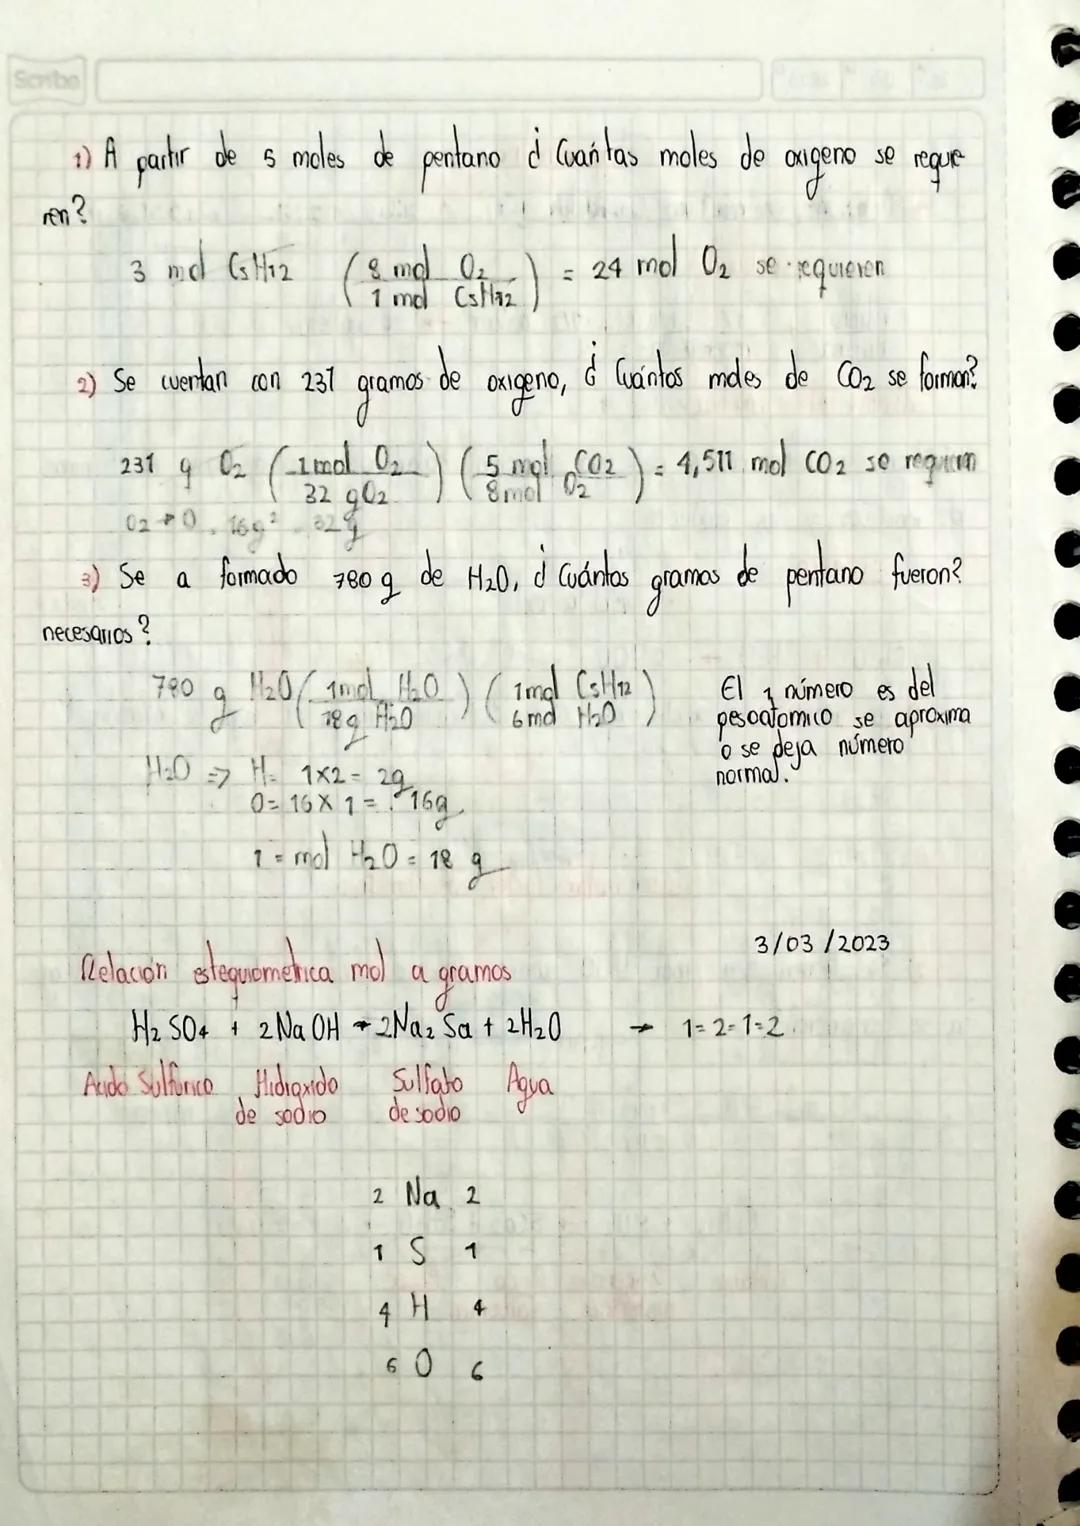 Scribe
1) A partir de 5 moles de pentano ¿ Cuántas moles de oxigeno se reque
ren?
3 mol C5H12 ( 8 mol O2 / 1 mol C5H12 ) = 24 mol O2 se requieren
2) Se cuentan con 231 gramos de oxigeno, ¿ Cuántos moles de CO2 se forman?
231 g O2 ( 1 mol O2 / 32 gO2 ) ( 5 mol CO2 / 8 mol O2 ) = 4,511 mol CO2 se
32g
3) Se a formado 780 g de H2O, ¿ Cuántos gramos de pentano fueron?
necesarios ?
780 g H2O ( 1mol H2O / 18g H2O ) ( 1mol C5H12 / 6mol H2O )
El 1 número es del
pesoatomico se aproxima
o se deja número
normal.
H2O => H= 1x2= 2g
O= 16x1= 16g
1 = mol H2O = 18 g
3/03/2023
Relación estequiometrica mol a gramos
H2 SO4 + 2NaOH → 2Na2 Sa + 2H2O → 1=2=1=2
Acido Sulfurico Hidroxido Sulfato Agua
de sodio de sodio
2 Na 2
1 S 1
4 H 4
6 O 6